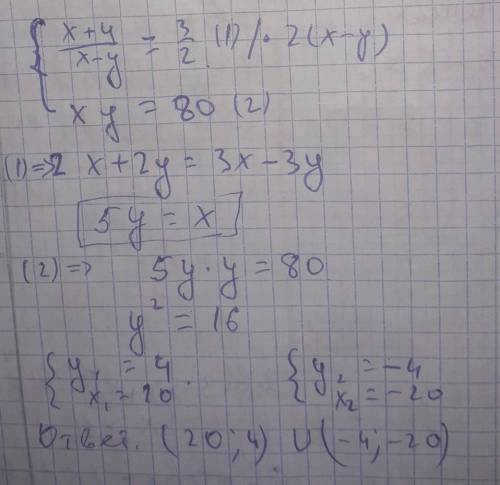 { x+y/x-y = 3/2 (1) /· 2(x-y)
xy = 80 (2)
(1)=>2x+2y=3x-3y
5y=x
(2)=> 5y·y=80
y²=16
{ y₁ = 4 { y₂ = -4
x₁ = 20 x₂ = -20
Ответ. (20;4) U (-4;-20)